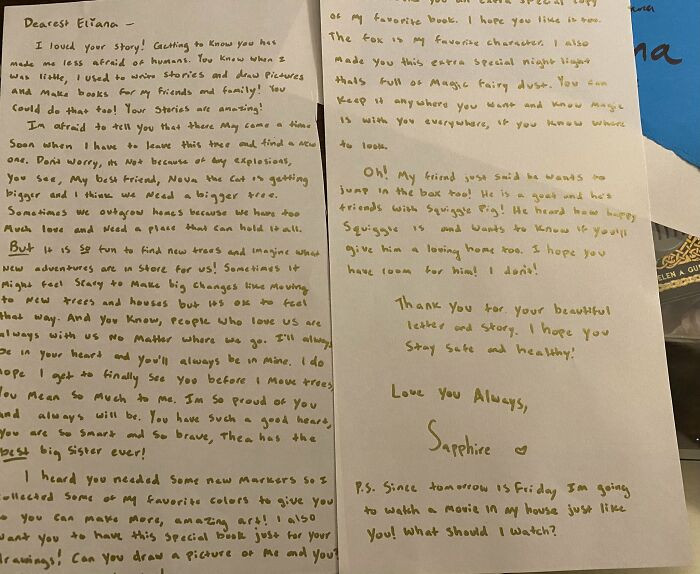 Dearest Eliana -
I loved your story! Getting to know you has
made me less afraid of humans. You know when I
was little, I used to write stories and draw pictures
and make books for my friends and family! You
could do that too! Your stories are amazing!
Im afraid to tell you that there may come a time
soon when I have to leave this tree and find a new
one. Dont worry, its not because of any explosions,
you see, my best friend, Nova the cat is getting
bigger and I think we need a bigger tree.
Sometimes we outgrow homes because we have too
much love and need a place that can hold it all.
But it is so fun to find new trees and imagine what
new adventures are in store for us! Sometimes it
might feel scary to make big changes like moving
to new trees and houses but its ok to feel
that way. And you know, people who love us are
always with us no matter where we go. I'll always
be in your heart and you'll always be in mine. I do
hope I get to finally see you before I move trees,
You mean so much to me. Im so proud of you
and always will be. You have such a good heart,
you are so smart and so brave, Thea has the
best big sister ever!
I heard you needed some new markers so I
collected some of my favorite colors to give you
so you can make more, amazing art! I also
want you to have this special book just for your
drawings! Can you draw a picture of me and you?
you an extra special copy
of my favorite book. I hope you like is too.
The fox is my favorite character. I also
made you this extra special night light
thats full of magic fairy dust. You can
keep it anywhere you want and know magic
is with you everywhere, if you know where
to look.
Oh! My friend just said he wants to
jump in the box too! He is a goat and he's
friends with Squiggle Pig! He heard how happy
Squiggle is and wants to know if you'll
give him a loving home too. I hope you
have room for him! I don't!
Thank you for your beautiful
letter and story. I hope you
stay safe and healthy!
Love you Always,
Sapphire
P.S. Since tomorrow is Friday Im going
to watch a movie in my house just like
you! What should I watch?
na
ELEN A GU